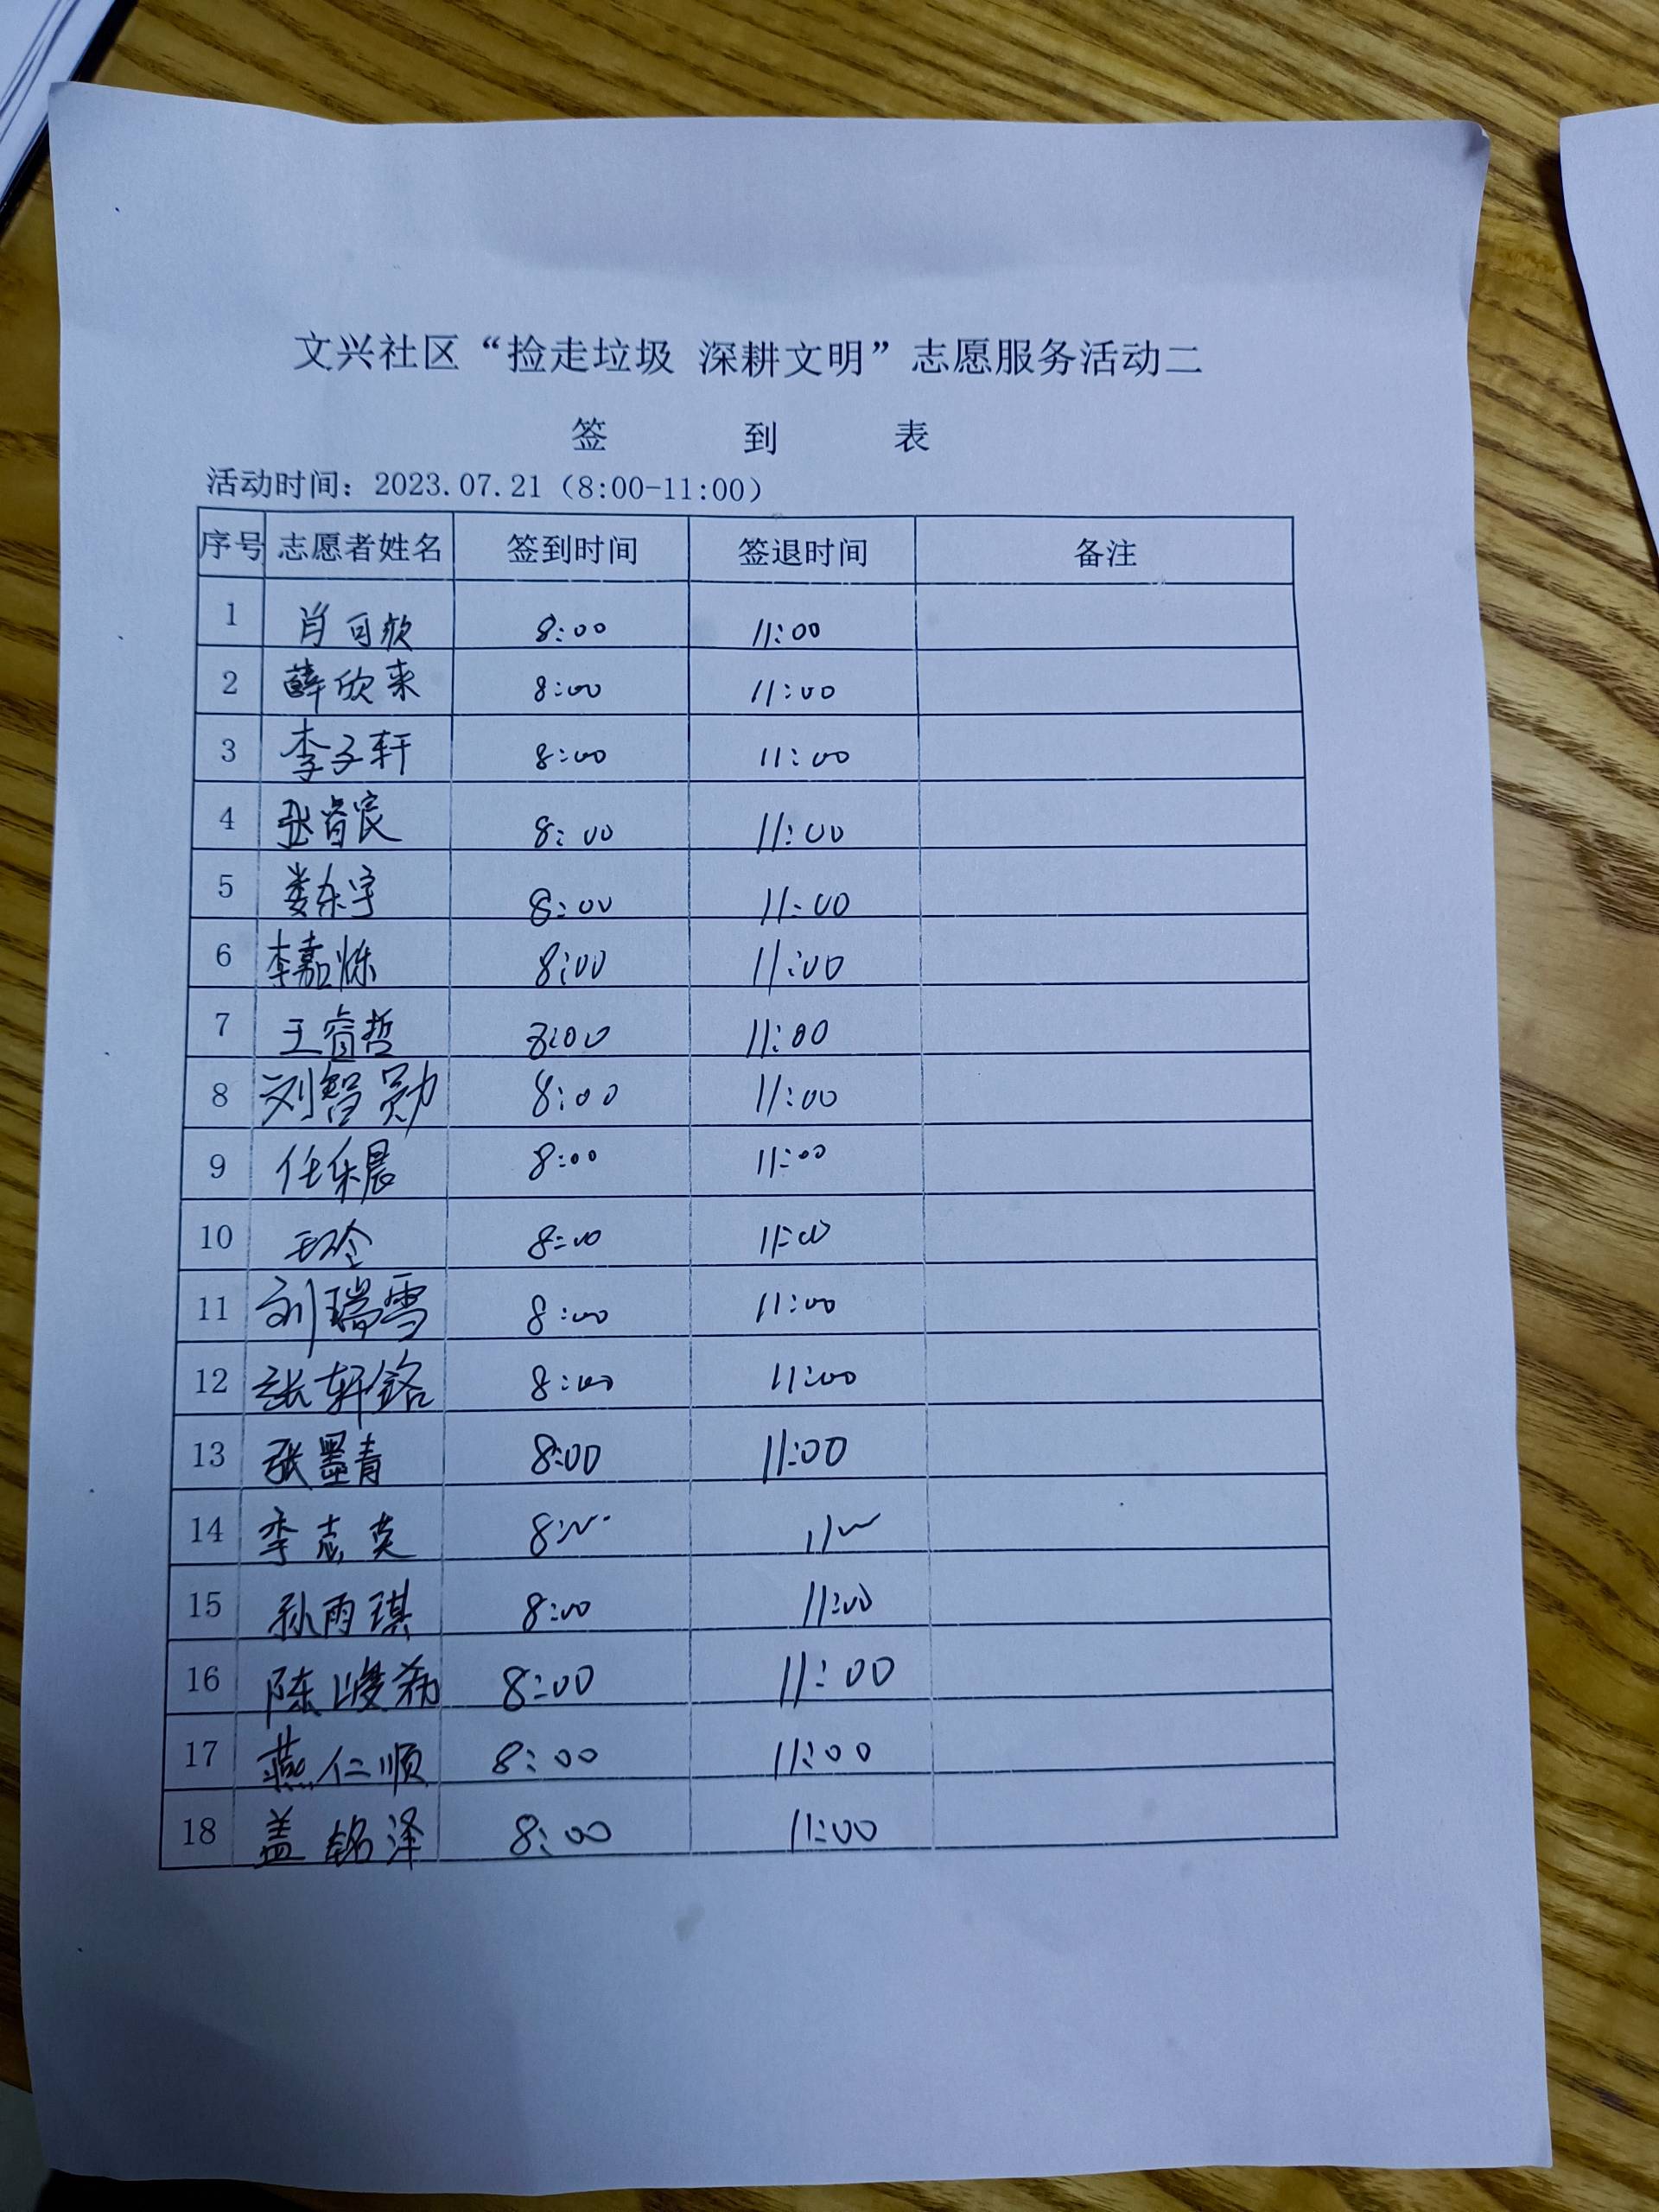 文兴社区“捡走垃圾 深耕文明”志愿服务活动二
签 到 表
活动时间：2023.07.21（8:00-11:00）
序号 志愿者姓名 签到时间 签退时间 备注
1 肖可欣 8:00 11:00
2 薛欣来 8:00 11:00
3 李子轩 8:00 11:00
4 张睿宸 8:00 11:00
5 娄东宇 8:00 11:00
6 李嘉烁 8:00 11:00
7 王睿哲 8:00 11:00
8 刘智勋 8:00 11:00
9 任乐晨 8:00 11:00
10 8:00 11:00
11 刘瑞雪 8:00 11:00
12 张轩铭 8:00 11:00
13 张墨青 8:00 11:00
14 李志英
15 孙雨琪 8:00 11:00
16 陈 8:00 11:00
17 燕仁顺 8:00 11:00
18 盖铭泽 8:00 11:00